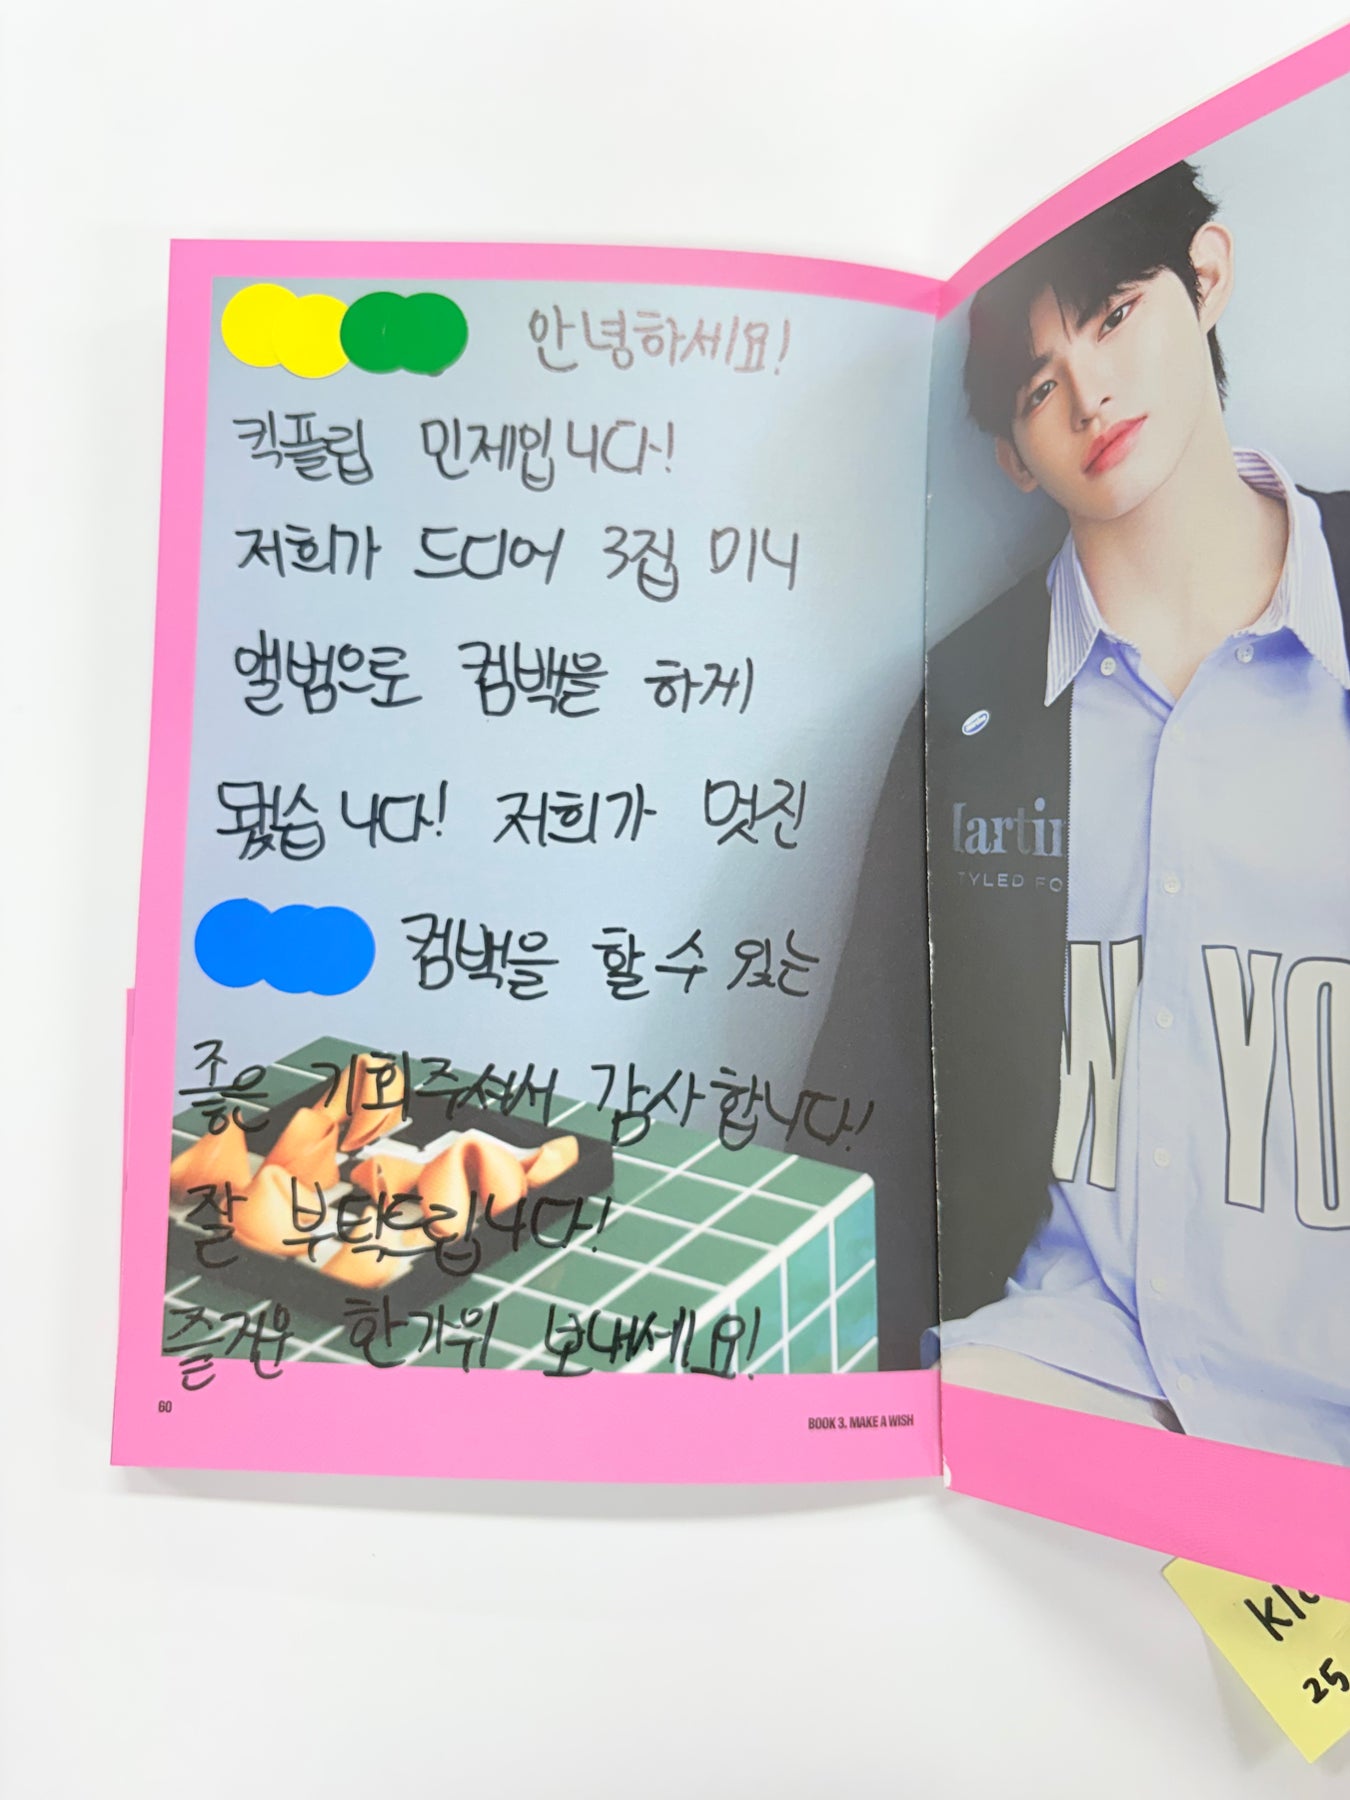 안녕하세요!
킥플립 민제입니다!
저희가 드디어 3집 미니
앨범으로 컴백을 하게
됐습니다! 저희가 멋진
컴백을 할 수 있는
좋은 기회 주셔서 감사합니다!
잘 부탁드립니다!
즐거운 한가위 보내세요!
60
BOOK 3. MAKE A WISH
artin
TYLED FO
W YO
25